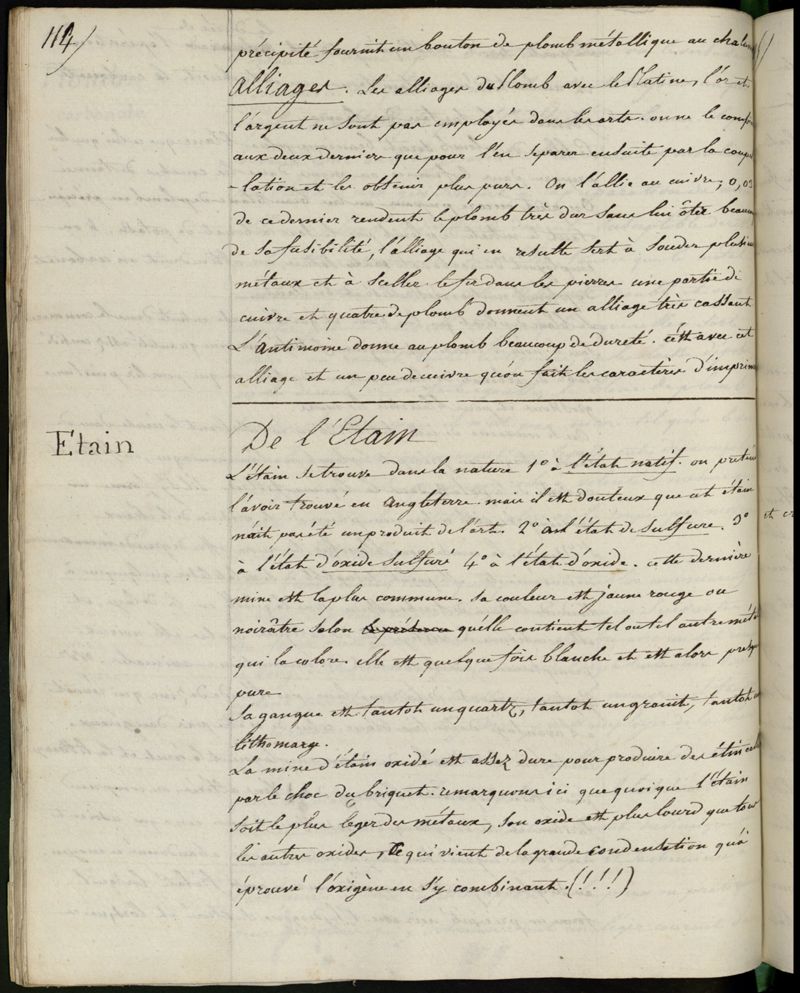 114)
précipité fournit un bouton de plomb métallique au chalu
Alliages. Les alliages du Plomb avec le Platine, l'or et
l'argent ne sont pas employés dans les arts. on ne le com
aux deux derniers que pour l'en séparer ensuite par la coup
-lation et les obtenir plus purs. On l'allie au cuivre, 0,0
de ce dernier rendent le plomb très dur sans lui ôter beauc
de sa fusibilité, l'alliage qui en resulte sert à souder plusieu
métaux et à sceller le fer dans les pierres une partie de
cuivre et quatre de plomb donnent un alliage très cassant
L'Antimoine donne au plomb beaucoup de dureté. c'est avec cet
alliage et un peu de cuivre qu'on fait les caractères d'imprim
Etain
De l'Etain
L'étain se trouve dans la nature 1° à l'état natif. on préten
l'avoir trouvé en Angleterre. mais il est douteux que cet étain
n'ait pas été un produit de l'art. 2° à l'état de sulfure. 3°
à l'état d'oxide sulfuré 4° à l'état d'oxide. cette dernière
mine est la plus commune. sa couleur est jaune rouge ou
noirâtre selon la présence qu'elle contient tel ou tel autre méta
qui la colore. elle est quelque fois blanche et est alors presq
pure
Sa gangue est tantôt un quartz, tantôt un granit, tantôt
lithomarge.
La mine d'étain oxidé est assez dure pour produire des étincel
par le choc du briquet. remarquons ici que quoique l'étain
soit le plus leger des métaux, son oxide est plus lourd que tou
les autres oxides, ce qui vient de la grande condensation qu'a
éprouvé l'oxigène en s'y combinant. (!!!)
et